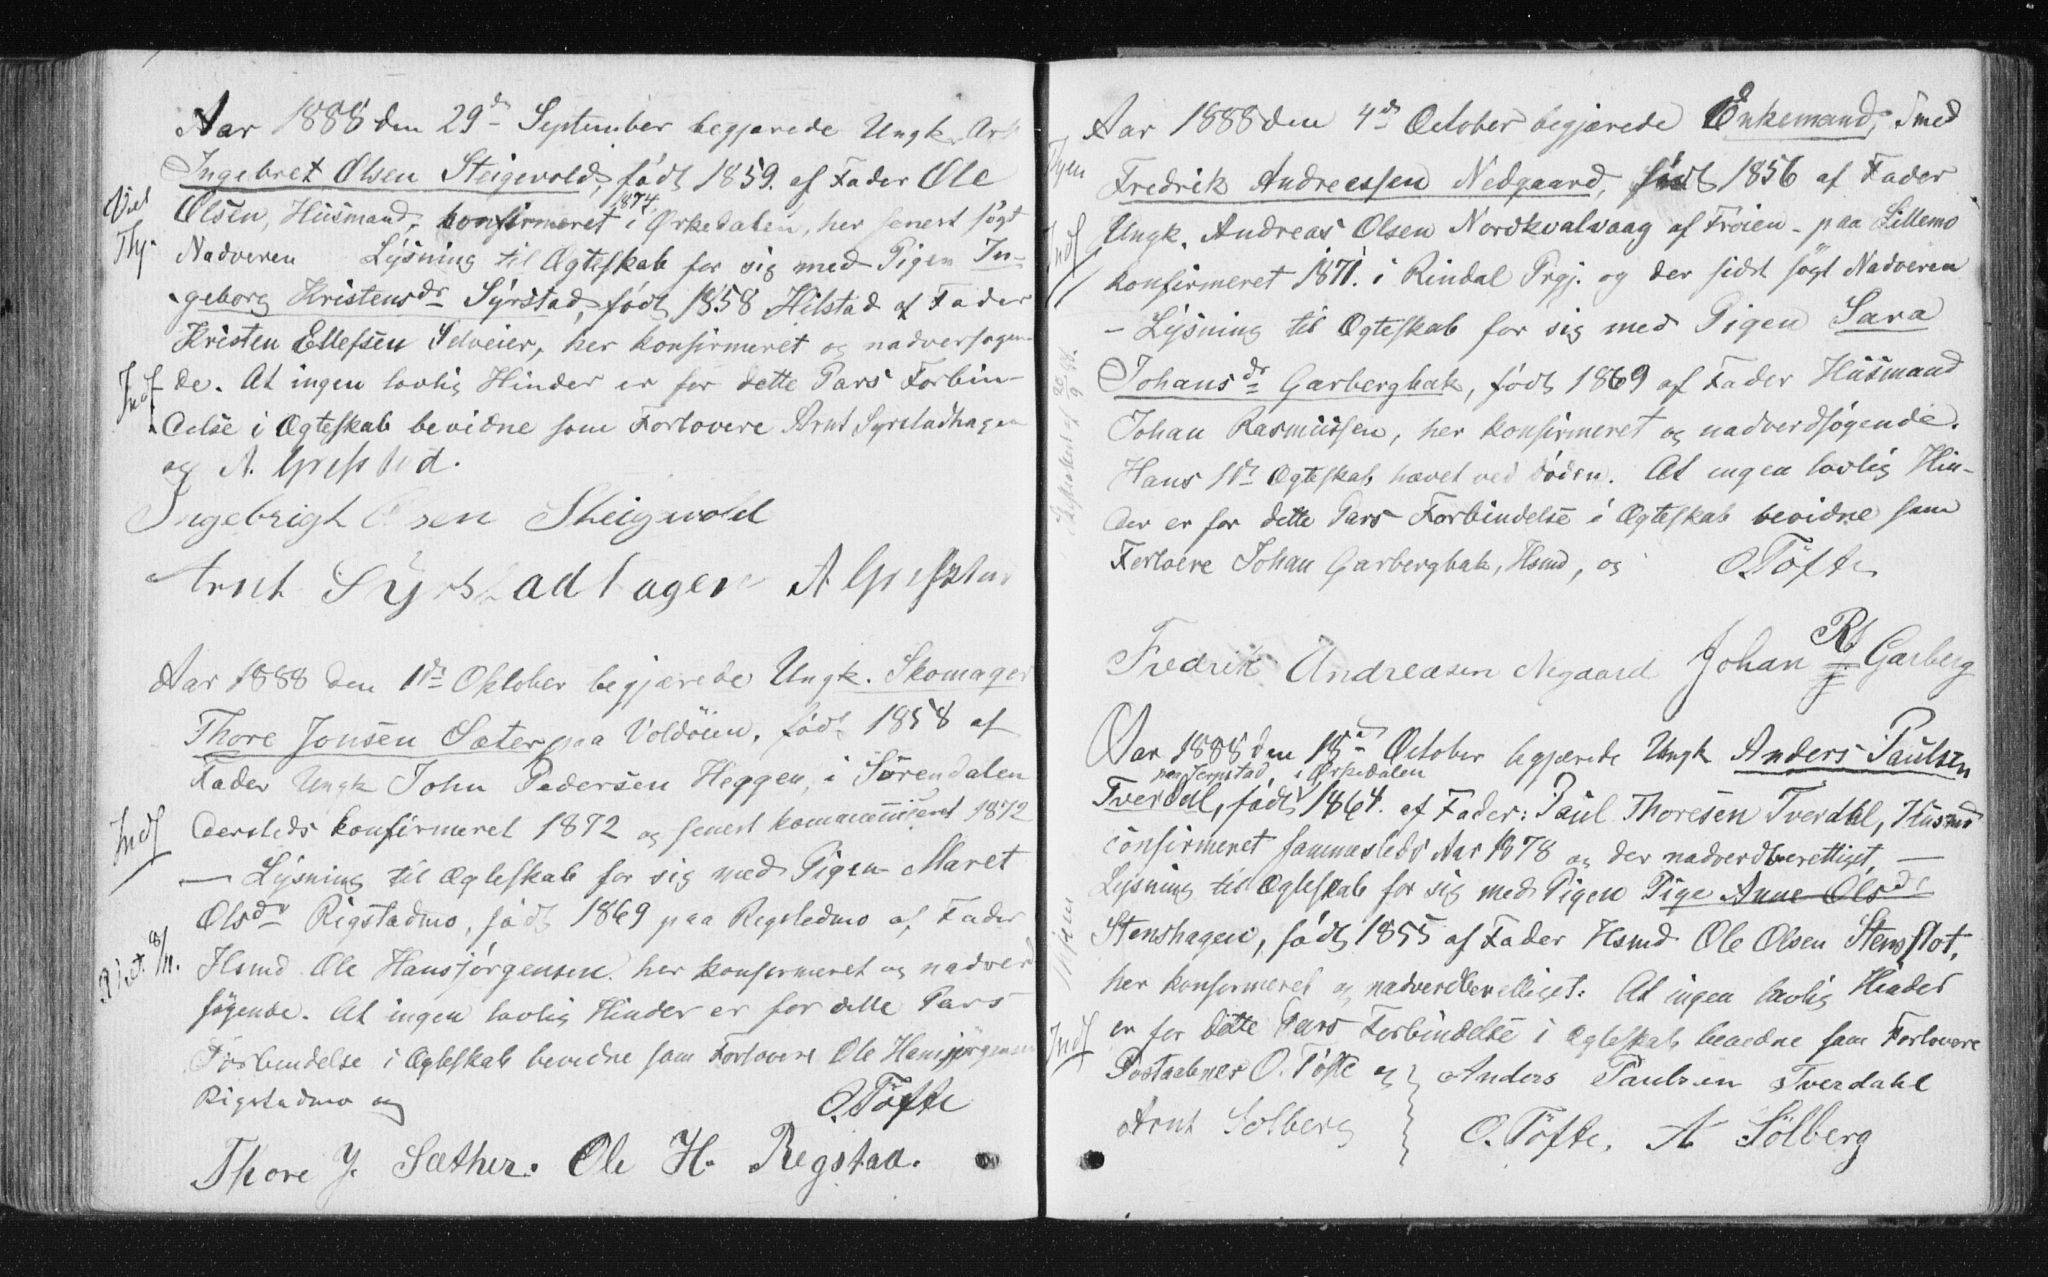 Aar 1888 den 29de September begjærede Ungk. Arb
Ingebret Olsen Steigevold, født 1859. af Fader Ole
Viet
Olsen, Husmand, konfirmeret 1874. i Ørkedalen, her senest søgt
Nadveren Lysning til Ægteskab for sig med Pigen In-
geborg Kristensdr Syrstad, født 1858 Hilstad af Fader
Kristen Ellefsen Selveier, her konfirmeret og nadversøgen-
Indf
de. At ingen lovlig Hinder er for dette Pars Forbin-
delse i Ægteskab bevidne som Forlovere Arnt Syrstadhagen
og A. Grefstad.
Ingebrigt Olsen Steigevold
Arnt Syrstadhagen A Grefstad
Aar 1888 den 1de Oktober begjærede Ungk. Skomager
Thore Jonsen Sæter paa Voldøien, født 1858 af
Fader Ungk John Pedersen Heggen, i Sürendalen
Indf
dersteds konfirmeret 1872 og senest kommuniseret 1872
— Lysning til Ægteskab for sig med Pigen Maret
Olsdr Rigstadmo, født 1869 paa Regstadmo af Fader
Viet 8/11.
Hsmd Ole Hansjørgensen her konfirmeret og nadver
søgende. At ingen lovlig Hinder er for dette Pars
Forbindelse i Ægteskab bevidne som Forlovere Ole Hansjørgensen
Rigstadmo og O. Tøfte
Thore J. Sæther. Ole H. Regstad.
Aar 1888 den 4de October begjærede Enkemand, Smed
Fredrik Andreassen Nedgaard, født 1856 af Fader
Ungk. Andreas Olsen Nordkvalvaag af Frøien - paa Lillemo
Indf
konfirmeret 1871. i Rindal Prgj. og der sidst søgt Nadveren
— Lysning til Ægteskab for sig med Pigen Sara
Johansdr Garbergbak, født 1869 af Fader Husmand
Johan Rasmussen, her konfirmeret og nadverdsøgende.
Hans 1ste Ægteskab hævet ved Døden. At ingen lovlig Hin-
der er for dette Pars Forbindelse i Ægteskab bevidne som
Forlovere Johan Garbergbak, Hsmd, og O. Tøfte
Fredrik Andreasen Negaard Johan Rs Garberg
Aar 1888 den 15de October begjærede Ungk Anders Paulsen
i Ørkedalen
Tverdal, født 1864. af Fader: Paul Thoresen Tverdal, Husmd
confirmeret sammesteds Aar 1878 og der nadverdberettiget, —
Lysning til Ægteskab for sig med Pigen Pige Anne Olsdr
Stenshagen, født 1855 af Fader Hsmd Ole Olsen Stensflot,
her konfirmeret og nadverdberettiget: At ingen lovlig Hinder
er for dette Pars Forbindelse i Ægteskab bevidne som Forlovere
Indf
Postaabner O. Tøfte og Anders Paulsen Tverdahl
Arnt Solberg O. Tøfte. A Sölberg